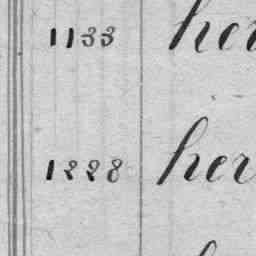 1133 her
1228 her